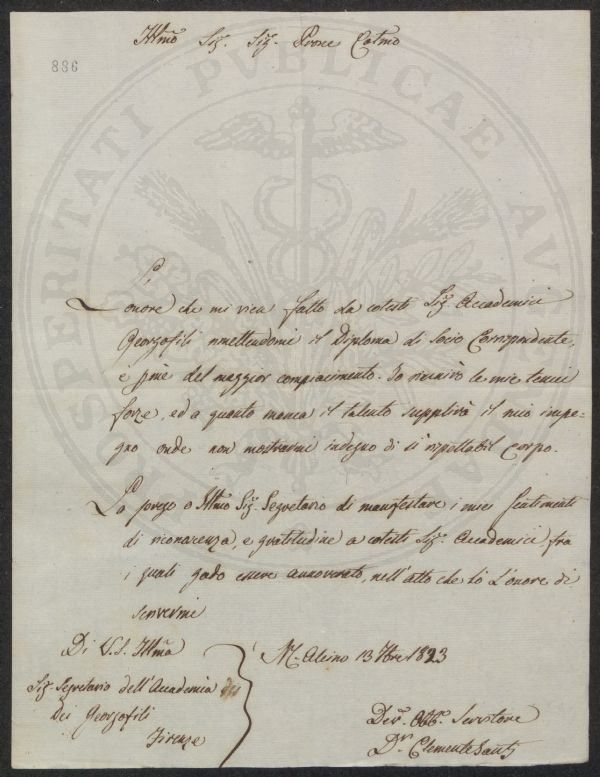 Illmo Sig. Sig. Prone Colmo
886
L'onore che mi vien fatto da cotesti Sig. Accademici
Georgofili rimettendomi il Diploma di Socio Corrispondente,
è p me del maggior compiacimento. Io riunirò le mie tenui
forze, ed a quanto manca il talento supplirà il mio impe=
gno onde non mostrarmi indegno di si rispettabil Corpo.
La prego o Illmo Sig. Segretario di manifestare i miei sentimenti
di riconoscenza, e gratitudine a cotesti Sig. Accademici fra
i quali godo essere annoverato, nell'atto che hò L'onore di
scrivermi
Di V.S. Illma
M. Alcino 13 1823
Sig. Segretario dell'Accademia
Dei Georgofili
Firenze
Dev. Obb. Servitore
Dr. Clemente Santi
PROSPERITATI PVBLICAE AVGENDAE